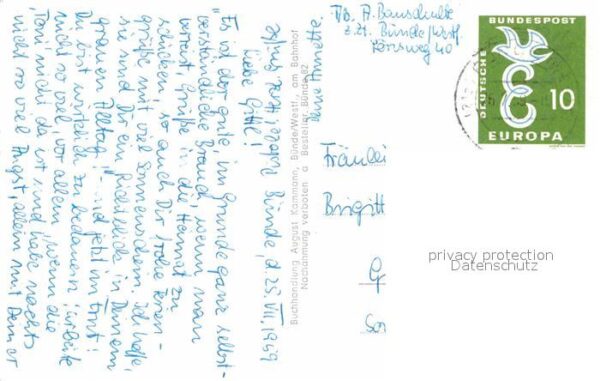 Bünde, d. 25. VII. 1959
Liebe Gitti!
"Es ist der gute, im Grunde ganz selbst-
verständliche Brauch, wenn man
verreist, Grüße in die Heimat zu
schicken, so auch Dir frohe Ferien-
grüße mit viel Sonnenschein. Ich hoffe,
sie sind Dir ein Lichtblick in Deinem
grauen Alltag. Und jetzt im Ernst:
Du bist wirklich zu bedauern! Arbeite
nicht so viel, vor allem, wenn die
"Toni" nicht da ist und habe nachts
nicht so viel Angst, allein mit Deiner
Deine Annette
Buchhandlung August Kammann, Bünde/Westf., am Bahnhof
Nachahmung verboten a Bestellnr. Bünde 82
A. Bauschulte
z. Zt. Bünde/Westf.
40
DEUTSCHE
BUNDESPOST
10
EUROPA
Fräulein
Brigitt
G
privacy protection
Datenschutz